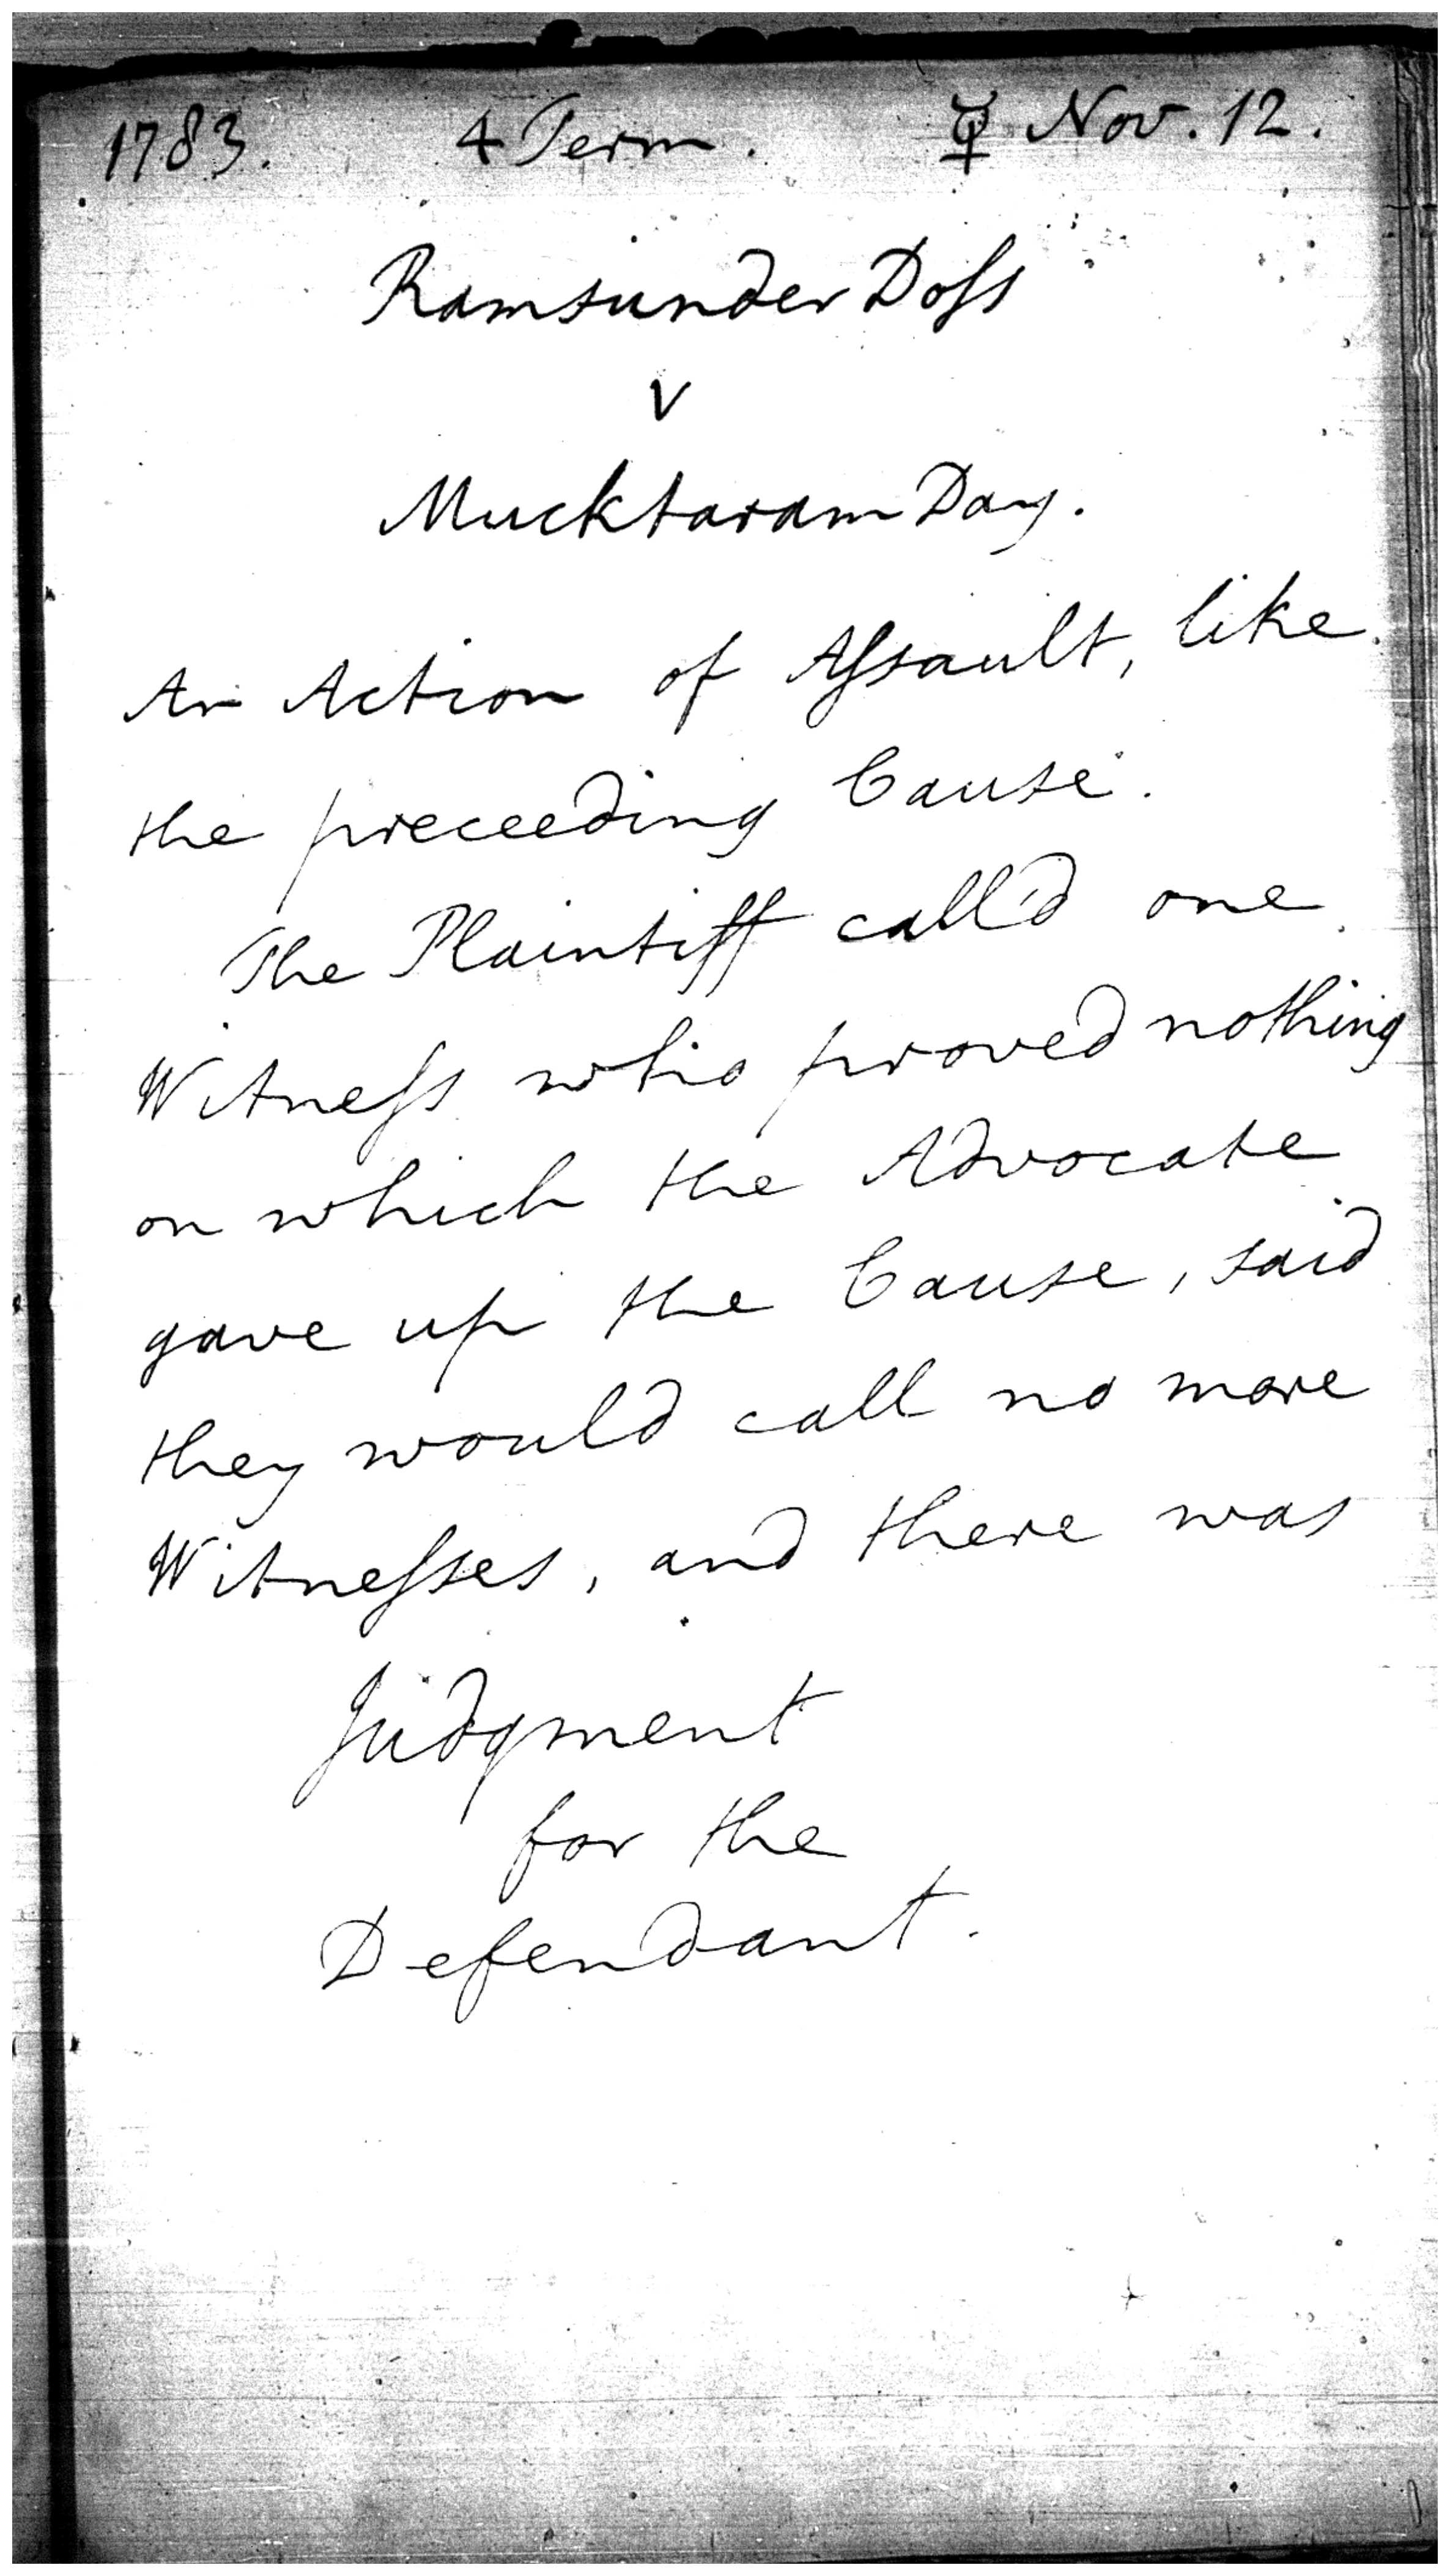 1783. 4 Term. ☿ Nov. 12.
Ramsunder Doſs
v
Mucktaram Day.
An Action of Aſsault, like
the preceeding Cause.
The Plaintiff call'd one
Witneſs who proved nothing
on which the Advocate
gave up the Cause, said
they would call no more
Witneſses, and there was
Judgment
for the
Defendant.